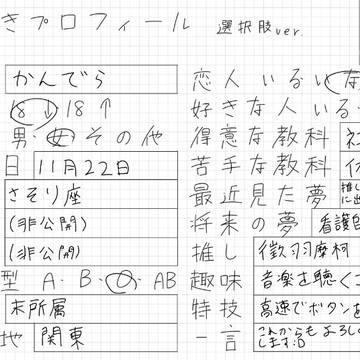 きプロフィール 選択肢ver.
かんでら
18↓ 18↑
男・女 その他
日 11月22日
さそり座
(非公開)
(非公開)
型 A・B・O・AB
未所属
地 関東
恋人 いる いな
好きな人 いる
得意な教科
苦手な教科
最近見た夢 推し
将来の夢 看護
推し 徴羽摩柯
趣味 音楽を聴く
特技 高速でボタンを
一言 これからもよろし
します:D